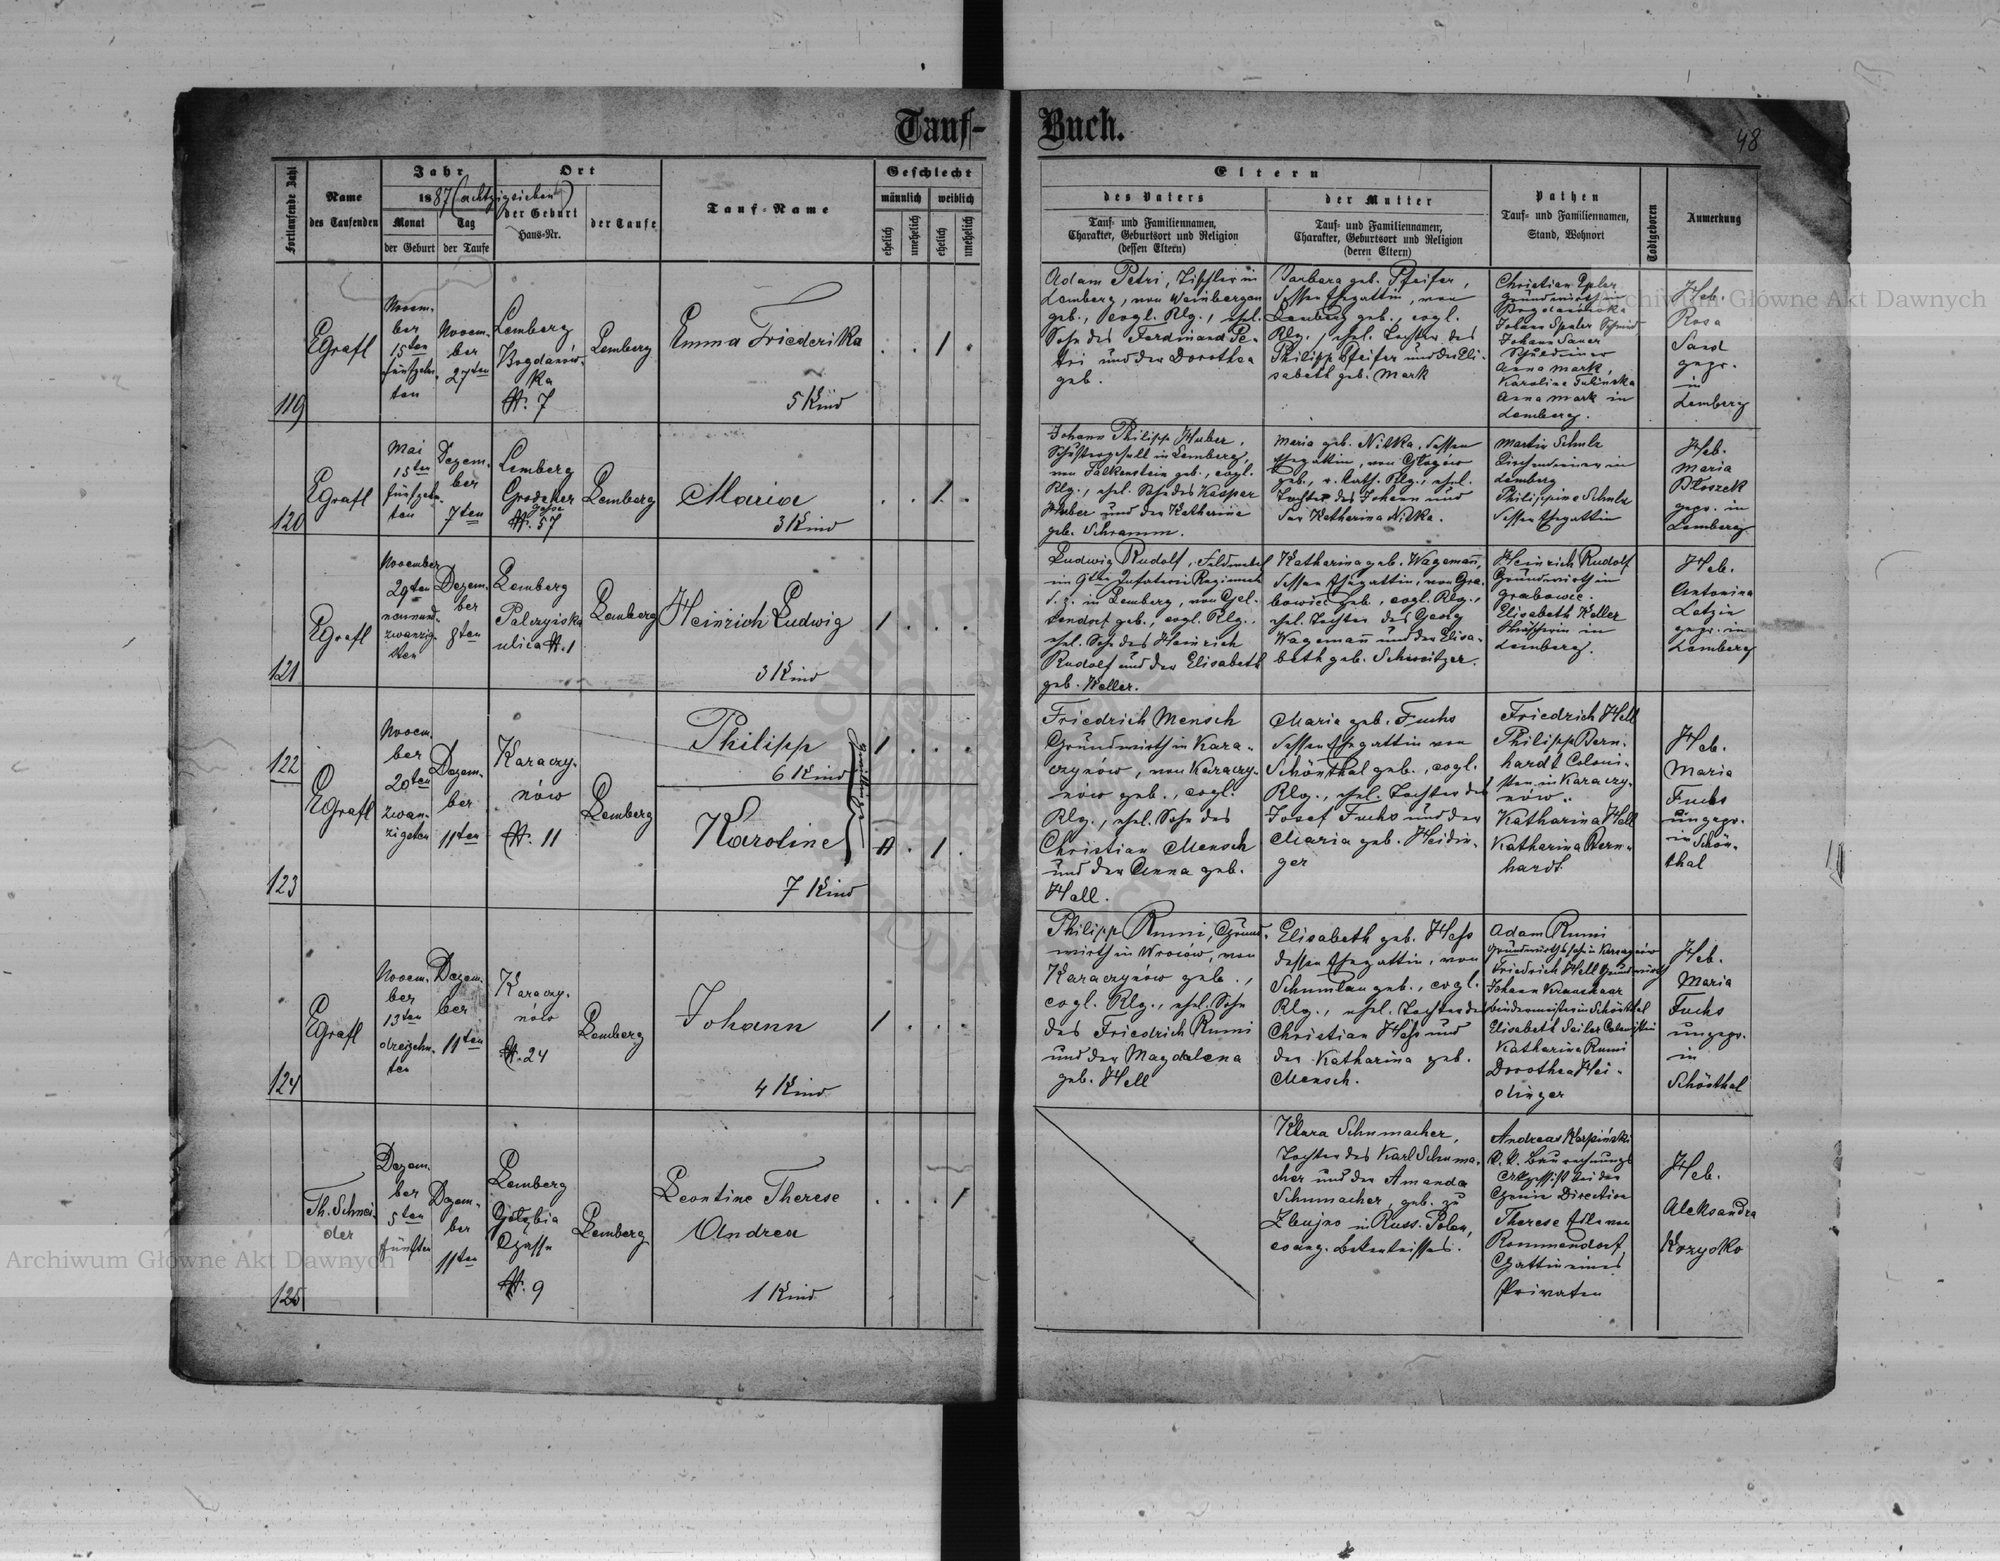 Tauf-
Buch.
48
Fortlaufende Zahl
Name
des Taufenden
Jahr
1887 (achtzigsieben)
Monat
Tag
der Geburt
der Taufe
Ort
der Geburt
Haus-Nr.
der Taufe
Tauf-Name
Geschlecht
männlich
weiblich
ehelich
unehelich
ehelich
unehelich
Eltern
des Vaters
Tauf- und Familiennamen,
Charakter, Geburtsort und Religion
(dessen Eltern)
der Mutter
Tauf- und Familiennamen,
Charakter, Geburtsort und Religion
(deren Eltern)
Pathen
Tauf- und Familiennamen,
Stand, Wohnort
Todtgeboren
Anmerkung
119
EGrafl
Novem-
ber
15ten
fünfzehn-
ten
Novem-
ber
27ten
Lemberg
Bogdanów-
ka
N. 7
Lemberg
Emma Friederika
5 Kind
1
Adam Petri, Tischler in
Lemberg, von Weinbergen
geb., evgl. Rlg., ehel.
Sohn des Ferdinand Pe-
tri und der Dorothea
geb.
Barbara geb. Pfeifer,
dessen Ehegattin, von
Lemberg geb., evgl.
Rlg., ehel. Tochter des
Philipp Pfeifer und der Eli-
sabeth geb. Mark
Christian
Grundwirth in
Bogdanówka
Johann Spaler Schmid
Johann Sauer
Anna Mark,
Karoline Tulinska
Anna Mark in
Lemberg.
Heb.
Rosa
gepr.
in
Lemberg
120
EGrafl
Mai
15ten
fünfzehn-
ten
Dezem-
ber
7ten
Lemberg
Grodeker
Gasse
N. 57
Lemberg
Maria
3 Kind
1
Johann Philipp Huber,
Schustergesell in Lemberg,
von Falkenstein geb., evgl.
Rlg., ehel. Sohn des Kaspar
Huber und der Katherine
geb. Schramm.
Maria geb. Nitka, dessen
Ehegattin, von Głogów
geb., r. kath. Rlg., ehel.
Tochter des Johann und
der Katharina Nitka.
Martin Schulz
Kirchendiener in
Lemberg
Philippine Schulz
dessen Ehegattin
Heb.
Maria
Błoszek
gepr. in
Lemberg
121
EGrafl
November
29ten
neunund-
zwanzig-
sten
Dezem-
ber
8ten
Lemberg
Palczyńska
ulica N. 1
Lemberg
Heinrich Ludwig
3 Kind
1
Ludwig Rudolf, Feldwebel
im 9ten Infaterie Regiment
d. Z. in Lemberg, von Gel-
sendorf geb., evgl. Rlg.,
ehel. Sohn des Heinrich
Rudolf und der Elisabeth
geb. Keller.
Katharina geb. Wagemann,
dessen Ehegattin, von Gra-
bowiec geb., evgl. Rlg.,
ehel. Tochter des Georg
Wagemann und der Elisa-
beth geb. Schweitzer.
Heinrich Rudolf
Grundwirth in
Grabowiec.
Elisabeth Keller
in
Lemberg.
Heb.
Antonina
gepr. in
Lemberg
122
123
EGrafl
Novem-
ber
20ten
zwan-
zigsten
Dezem-
ber
11ten
Karaczy-
nów
N. 11
Lemberg
Philipp
6 Kind
Karoline
7 Kind
Zwillinge
1
1
Friedrich Mensch
Grundwirth in Kara-
czynów, von Karaczy-
nów geb., evgl.
Rlg., ehel. Sohn des
Christian Mensch
und der Anna geb.
Hell.
Maria geb. Fuchs
dessen Ehegattin von
Schönthal geb., evgl.
Rlg., ehel. Tochter des
Josef Fuchs und der
Maria geb. Heidin-
ger
Friedrich Hell
Philipp Bern-
hardt Coloni-
sten in Karaczy-
nów.
Katharina Hell
Katharina Bern-
hardt
Heb.
Maria
Fuchs
ungepr.
in Schön-
thal
124
EGrafl
Novem-
ber
13ten
dreizehn-
ten
Dezem-
ber
11ten
Karaczy-
nów
N. 24
Lemberg
Johann
4 Kind
1
Philipp Rumi, Grund-
wirth in Wroców, von
Karaczynów geb.,
evgl. Rlg., ehel. Sohn
des Friedrich Rumi
und der Magdalena
geb. Hell
Elisabeth geb. Hess
dessen Ehegattin, von
Schumlau geb., evgl.
Rlg., ehel. Tochter des
Christian Hess und
der Katharina geb.
Mensch.
Adam Rumi
Grundwirthssohn in Karaczynów
Friedrich Hell Grundwirth
Johann Kraushaar
in Schönthal
Elisabeth Seiler Colonistin
Katharina Rumi
Dorothea Hei-
dinger
Heb.
Maria
Fuchs
ungepr.
in
Schönthal
125
Th. Schnei-
der
Dezem-
ber
5ten
fünften
Dezem-
ber
11ten
Lemberg
Gołębia
Gasse
N. 9
Lemberg
Leontine Therese
Andrea
1 Kind
1
Klara Schumacher,
Tochter des Karl Schuma-
cher und der Amanda
Schumacher, geb. zu
Zbujno in Russ. Polen,
evang. Bekentnisses.
Andreas Karpiński
k. k. Baurechnungs
bei der
Genie Direction
Therese Edle von
Rommendorf,
Gattin eines
Privaten
Heb.
Aleksandra
Krzysko
Archiwum Główne Akt Dawnych
Archiwum Główne Akt Dawnych